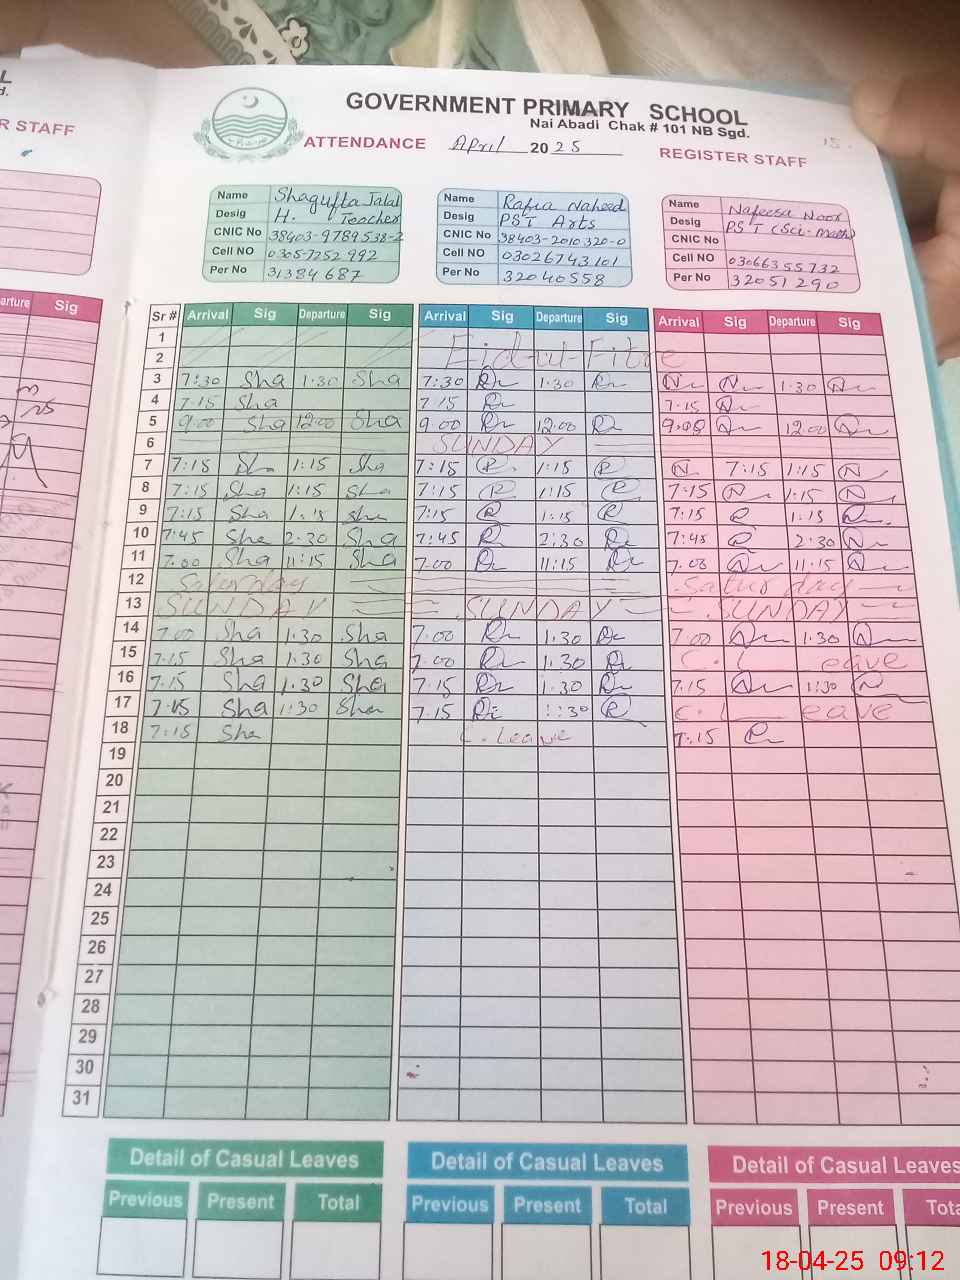 GOVERNMENT PRIMARY SCHOOL
Nai Abadi Chak # 101 NB Sgd.
R STAFF
ATTENDANCE April 2025 REGISTER STAFF
Name Shagufta Jalal Name Rafia Naheed Name Nafeesa Noor
Desig H. Teacher Desig PST Arts Desig PST (Sci-math)
CNIC No 38403-9789538-2 CNIC No 38403-2010320-0 CNIC No
Cell NO 0305-7252992 Cell NO 03026743101 Cell NO 03066355732
Per No 31384687 Per No 32040558 Per No 32051290
arture Sig
Sr # Arrival Sig Departure Sig Arrival Sig Departure Sig Arrival Sig Departure Sig
1
2 Eid-ul-Fitre
3 7:30 Sha 1:30 Sha 7:30 1:30 1:30
4 7.15 Sha 7.15 7.15
5 9.00 Sha 12:00 Sha 9.00 12:00 9.00 12:00
6 SUNDAY
7 7:15 Sha 1:15 Sha 7:15 R 1:15 R N 7:15 1:15 N
8 7:15 Sha 1:15 Sha 7:15 R 1:15 R 7:15 N 1:15 N
9 7:15 Sha 1:15 Sha 7:15 R 1:15 R 7:15 1:15
10 7:45 Sha 2:30 Sha 7:45 2:30 7:45 2:30
11 7.00 Sha 11:15 Sha 7.00 11:15 7.00 11:15
12 Saturday Saturday
13 SUNDAY SUNDAY SUNDAY
14 7.00 Sha 1.30 Sha 7.00 1:30 7.00 1:30
15 7.15 Sha 1.30 Sha 7.00 1:30 C. Leave
16 7.15 Sha 1.30 Sha 7.15 1:30 7.15 1:30
17 7.15 Sha 1:30 Sha 7.15 1:30 R C. Leave
18 7:15 Sha C. Leave 7.15
19
20
21
22
23
24
25
26
27
28
29
30
31
Detail of Casual Leaves Detail of Casual Leaves Detail of Casual Leaves
Previous Present Total Previous Present Total Previous Present Tota
18-04-25 09:12